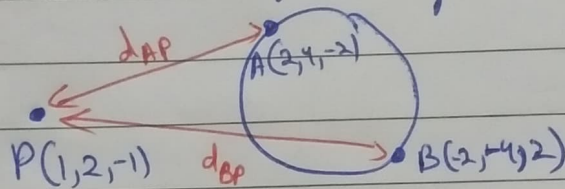 d_AP
A(2,4,-2)
P(1,2,-1)
d_BP
B(-2,-4,2)